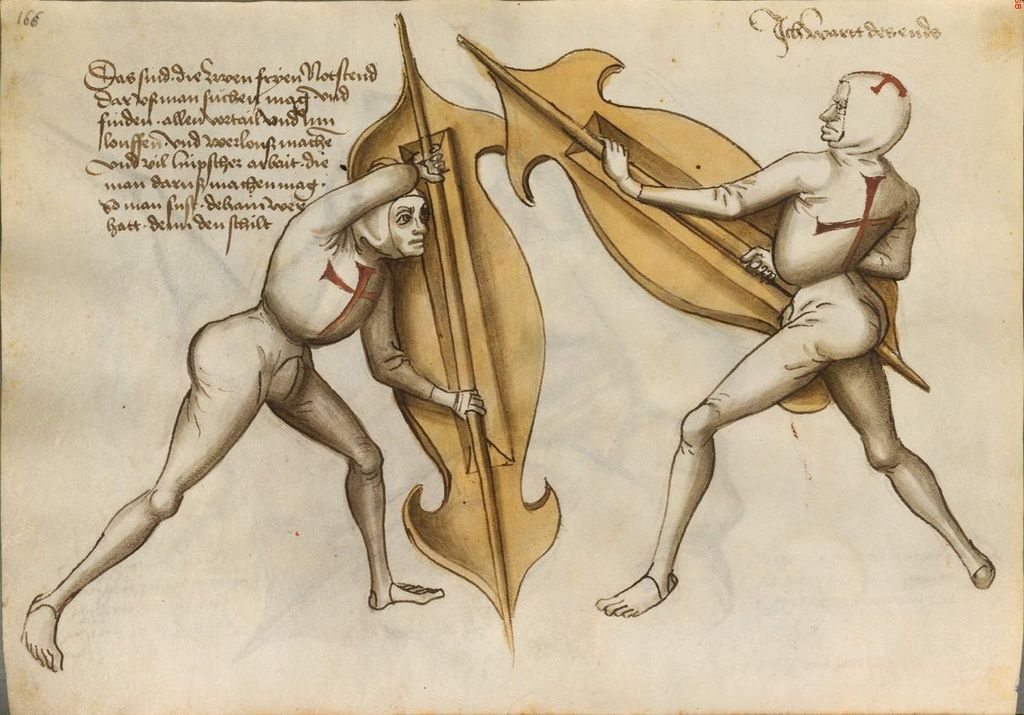 166
Das sind die zwen fryen Notstend
dar vß man suchen mag vnd
finden allen vortail vnd Im
louffen vnd verlouß mache
vnd vil hüpscher arbait die
man daruß machen mag
so man sust dehain wer
hatt denn den schilt
Ich wartt des ends